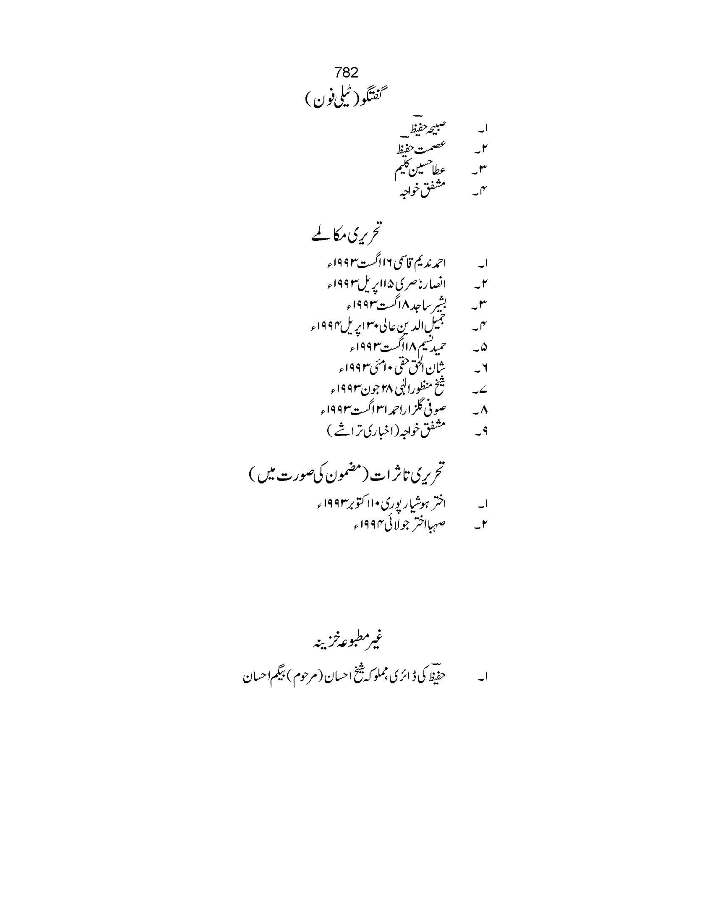 782
گفتگو (ٹیلی فون)
۱۔ صبیحہ حفیظؔ
۲۔ عصمت حفیظؔ
۳۔ عطا حسین کلیم
۴۔ مشفق خواجہ
تحریری مکالمے
۱۔ احمد ندیم قاسمی ۱۶ اگست ۱۹۹۳ء
۲۔ انصار ناصری ۱۵ اپریل ۱۹۹۳ء
۳۔ بشیر ساجد ۱۸ اگست ۱۹۹۳ء
۴۔ جمیل الدین عالی ۳۰ اپریل ۱۹۹۴ء
۵۔ حمید نسیم ۱۸ اگست ۱۹۹۳ء
۶۔ شان الحق حقی ۱۰ مئی ۱۹۹۳ء
۷۔ شیخ منظور الٰہی ۲۸ جون ۱۹۹۳ء
۸۔ صوفی گلزار احمد ۳۱ اگست ۱۹۹۳ء
۹۔ مشفق خواجہ (اخباری تراشے)
تحریری تاثرات (مضمون کی صورت میں)
۱۔ اختر ہوشیار پوری ۱۰ اکتوبر ۱۹۹۳ء
۲۔ صہبا اختر جولائی ۱۹۹۴ء
غیر مطبوعہ خزینہ
۱۔ حفیظؔ کی ڈائری مملوکہ شیخ احسان (مرحوم) بیگم احسان